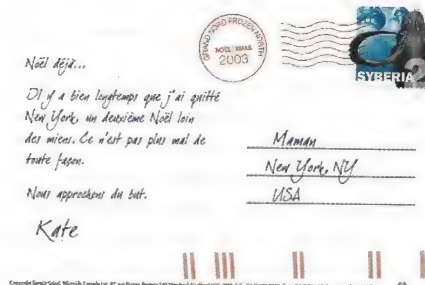 GRAND NORD FROZEN NORTH
NOËL XMAS
2003
SYBERIA
2
Noël déjà...
Il y a bien longtemps que j'ai quitté
New York, un deuxième Noël loin
des miens. Ce n'est pas plus mal de
toute façon.
Nous approchons du but.
Kate
Maman
New York, NY
USA